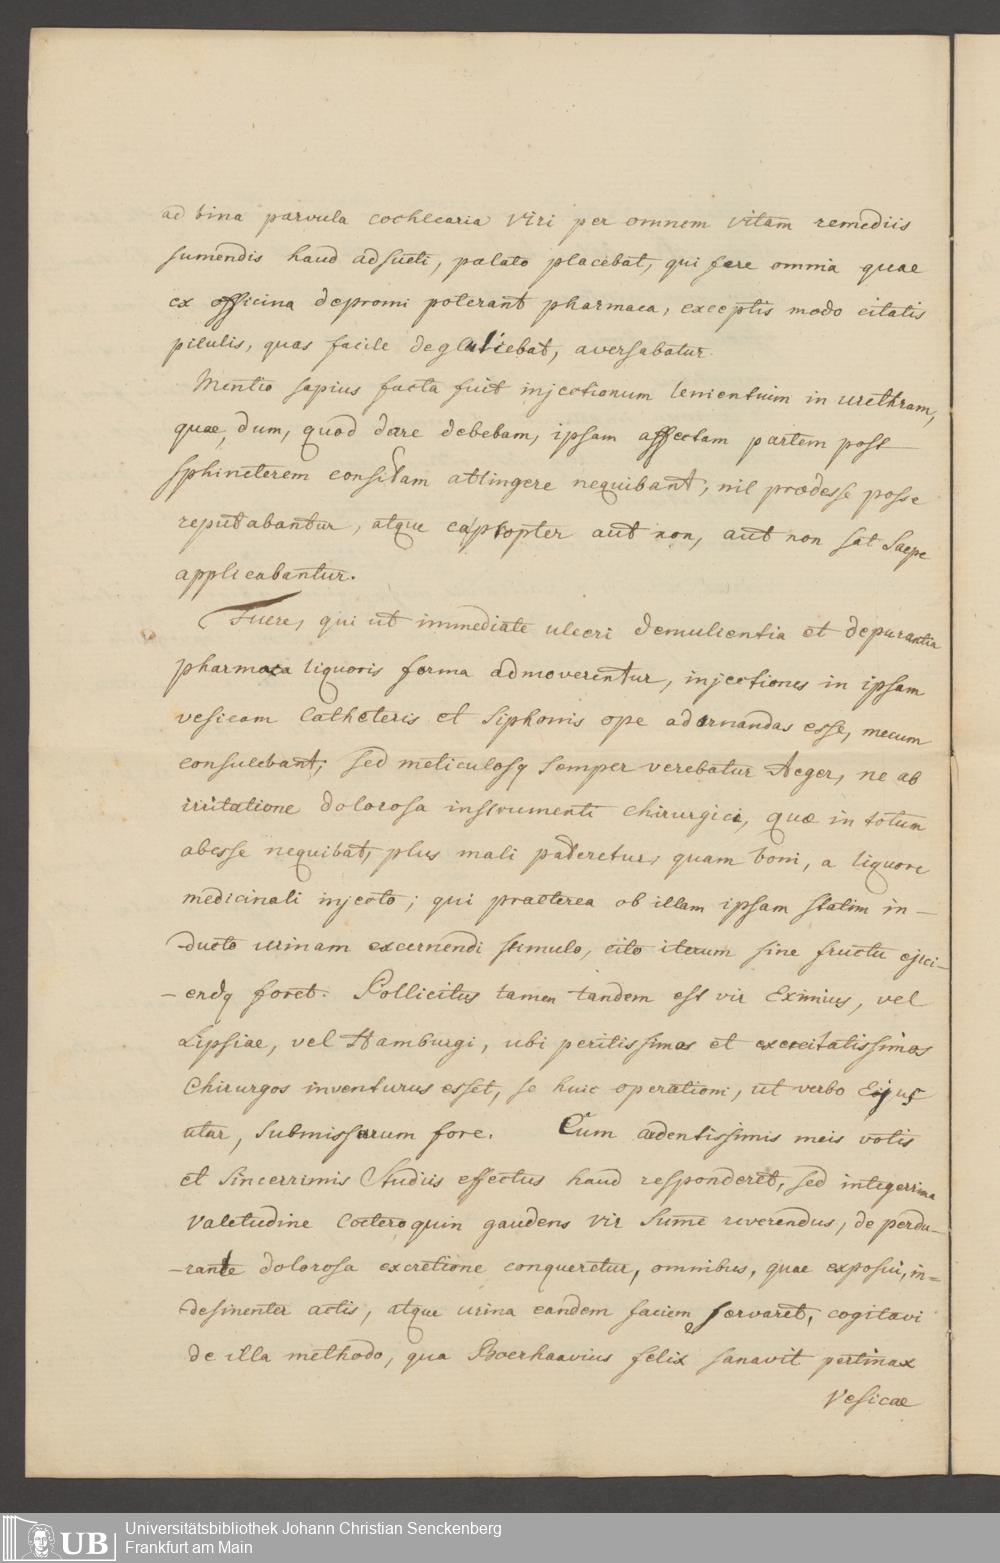 ad bina parvula cochlearia Viri per omnem vitam remediis
sumendis haud adsueti, palato placebat, qui fere omnia quae
ex officina depromi poterant pharmaca, exceptis modo citatis
pilulis, quas facile deglutiebat, aversabatur.
Mentio sapius facta fuit injectionum lenientuim in urethram,
quae, dum, quod dare debebam, ipsam affectam partem post
sphincterem consitam attingere nequibant, nil prodesse posse
reputabantur, atque eapropter aut non, aut non sat saepe
applicabantur.
Fuere, qui ut immediate ulceri demulientia et depurantia
pharmaca liquoris forma admoverentur, injectiones in ipsam
vesicam Catheteris et siphonis ope adornandas esse, mecum
consulebant; sed meticulosq semper verebatur Aeger, ne ab
irritatione dolorosa instrumenti chirurgici, quae in totum
abesse nequibat, plus mali pateretur, quam boni, a liquore
medicinali injecto; qui praeterea ob illam ipsam statim in-
-ducto urinam excernendi stimulo, cito iterum sine fructu ejici-
-endq foret. Pollicitus tamen tandem est vir Eximius, vel
Lipsiae, vel Hamburgi, ubi peritissimos et exercitatissimos
Chirurgos inventurus esset, se huic operationi, ut verbo Ejus
utar, submissurum fore. Cum ardentissimis meis votis
et sincerrimis studiis effectus haud responderet, sed integerrima
valetudine coeteroquin gaudens vir sume reverendus, de perdu-
-rante dolorosa excretione conqueretur, omnibus, quae exposui, in=
desinenter actis, atque urina eandem faciem servaret, cogitavi
de illa methodo, qua Boerhaavius felix sanavit pertinax
Vesicae
Universitätsbibliothek Johann Christian Senckenberg
Frankfurt am Main
UB